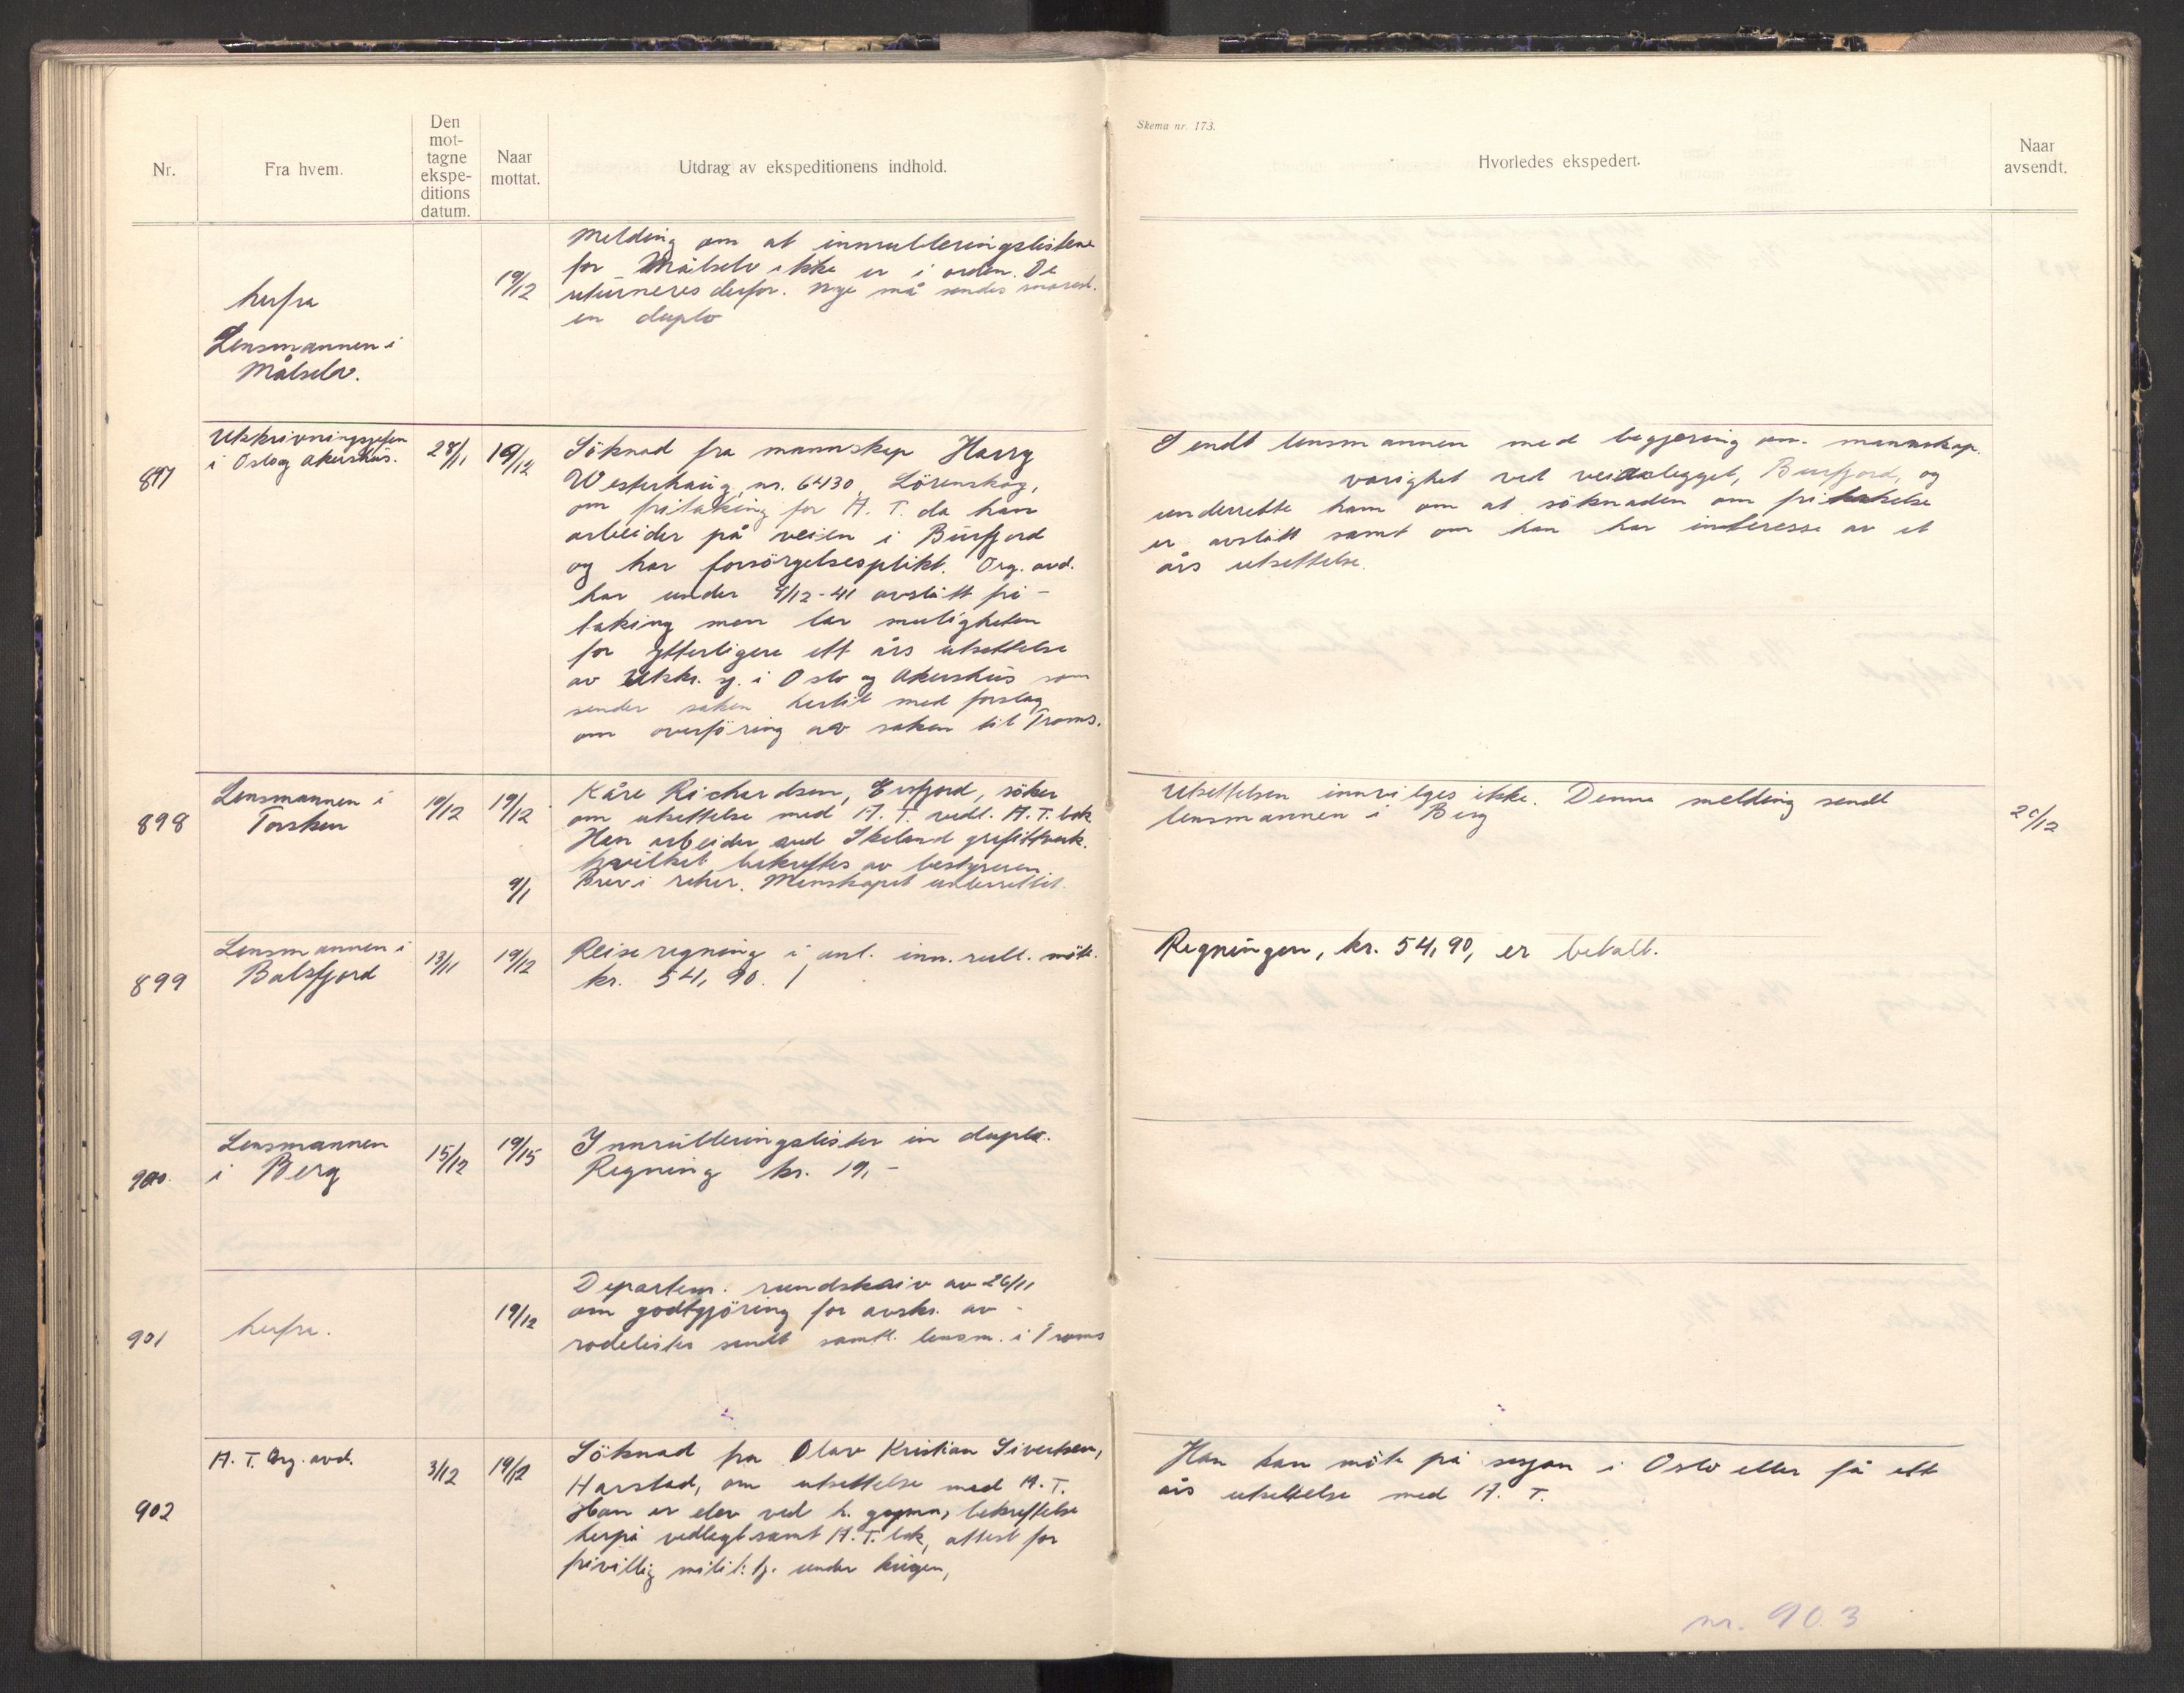 Skema nr. 173.
Nr.
Fra hvem.
Den
mot-
tagne
ekspe-
ditions
datum.
Naar
mottat.
Utdrag av ekspeditionens indhold.
Hvorledes ekspedert.
Naar
avsendt.
herfra
Lensmannen i
Målselv.
19/12
Melding om at innrulleringslistene
for Målselv ikke er i orden. De
returneres derfor. Nye må sendes snarest.
en duplo
897
Utskrivningssjefen
i Oslo og Akershus.
28/11
19/12
Söknad fra mannskap Harry
Westerhaug, nr. 6430, Lörenskog,
om fritaking for A. T. da han
arbeider på veien i Burfjord
og har forsörgelsesplikt. Org. avd.
har under 9/12-41 avslått fri-
taking men lar muligheten
for ytterligere ett års utsettelse
av Utskr. sj. i Oslo og Akershus som
sender saken hertil med forslag
om overföring av saken til Troms.
Sendt lensmannen med begjæring om mannskap.
varighet ved veianlegget, Burfjord, og
underrette ham om at söknaden om fritakelse
er avslått samt om han har interesse av et
års utsettelse.
898
Lensmannen i
Torsken
10/12
19/12
Kåre Richardsen, Ersfjord, söker
om utsettelse med A. T. vedl. A. T. bok
Han arbeider ved Skaland grafittverk.
hvilket bekreftes av bestyreren.
9/1
Brev i retur. Mannskapet underrettet.
Utsettelsen innvilges ikke. Denne melding sendt
lensmannen i Berg
20/12
899
Lensmannen i
Balsfjord
13/11
19/12
Reiseregning i anl. inn.rull. möte.
kr. 54,90.
Regningen, kr. 54,90, er betalt.
900.
Lensmannen
i Berg
15/12
19/15
Innrulleringslister in duplo.
Regning kr. 19,-
901
herfra.
19/12
Departem. rundskriv av 26/11
om godtgjöring for avskr. av
rodelister sendt samtl. lensm. i Troms
902
A. T. Org. avd.
3/12
19/12
Söknad fra Olav Kristian Sivertsen,
Harstad, om utsettelse med A. T.
Han er elev ved h. gymn, bekreftelse
herpå vedlagt samt A. T. bok, attest for
frivillig milit. tj. under krigen,
Han kan möte på sesjon i Oslo eller få ett
års utsettelse med A. T.
nr. 903